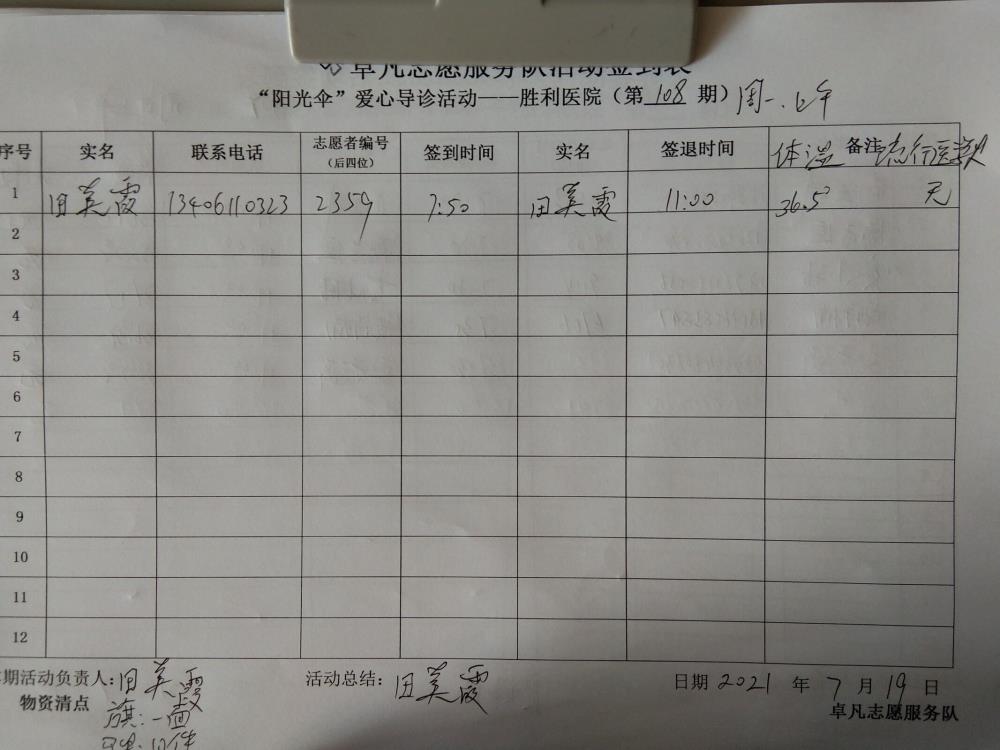 卓凡志愿服务队活动签到表
“阳光伞”爱心导诊活动——胜利医院（第 108 期）周一.上午
序号 实名 联系电话 志愿者编号（后四位） 签到时间 实名 签退时间 体温 备注 流行医学史
1 田美霞 13406110323 2359 7:50 田美霞 11:00 36.5 无
2
3
4
5
6
7
8
9
10
11
12
期活动负责人：田美霞 活动总结：田美霞 日期 2021 年 7 月 19 日
物资清点 旗：一面 卓凡志愿服务队